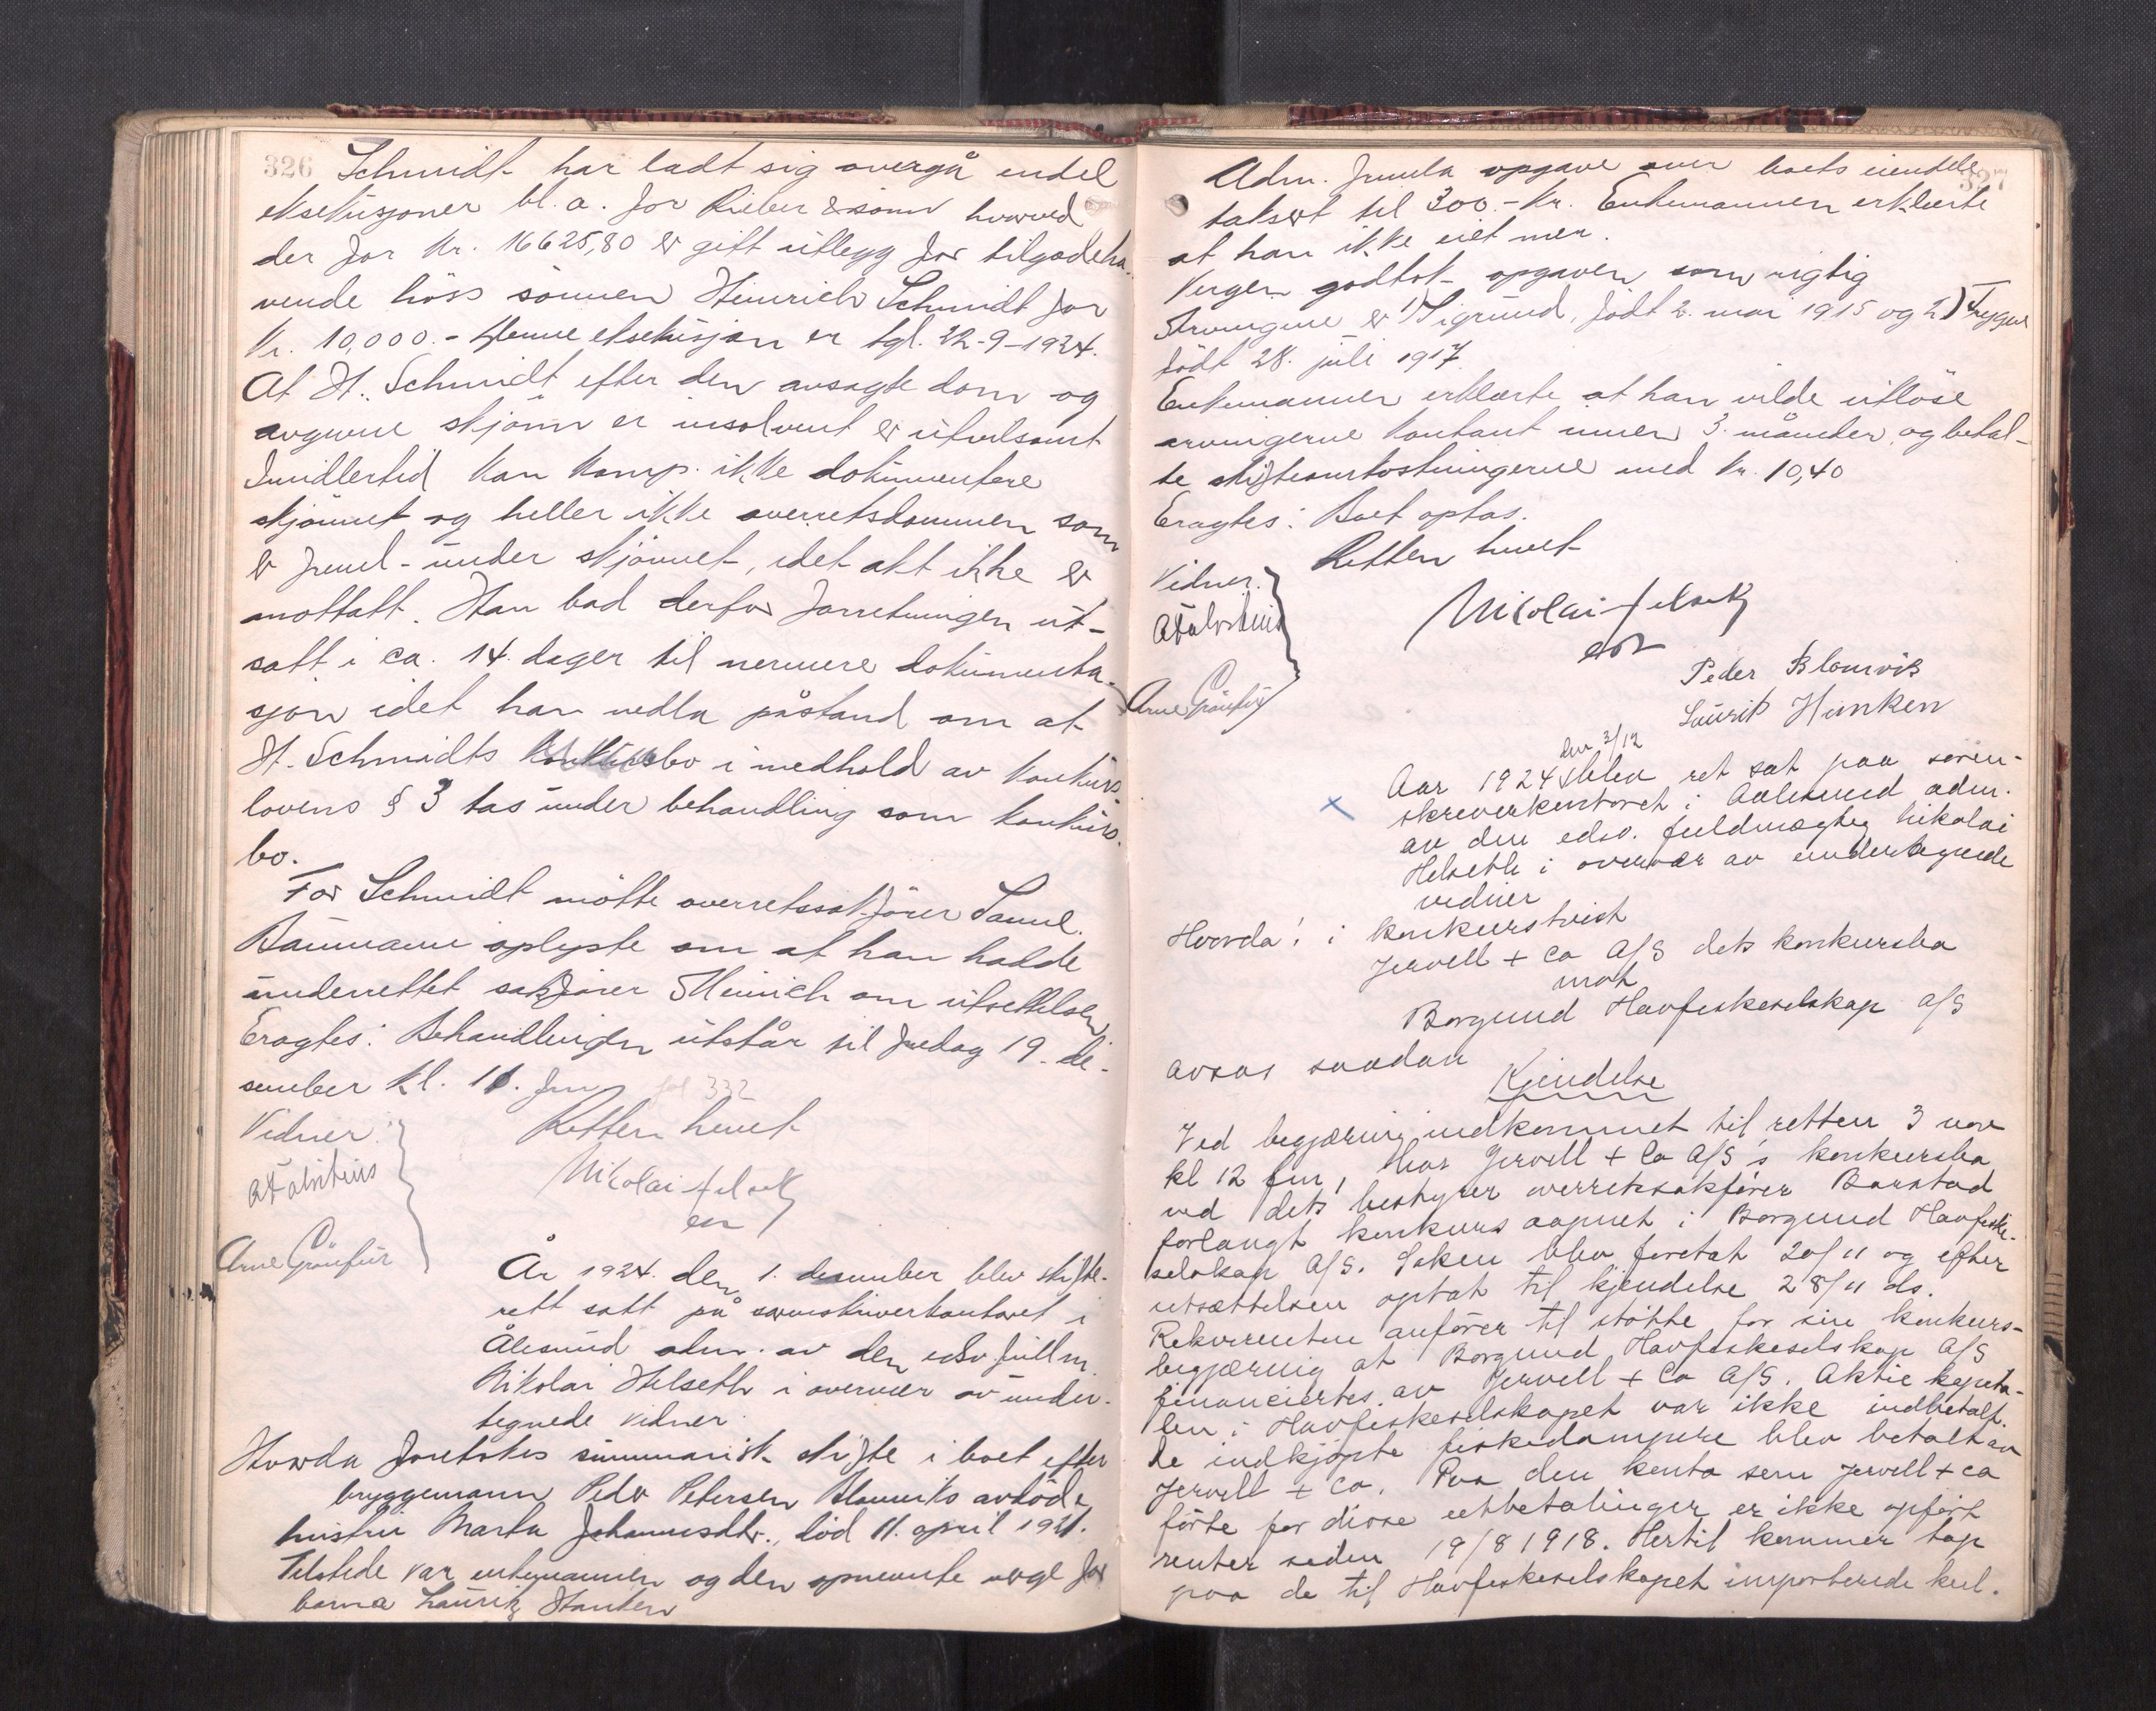 326
Schmidt har ladt sig overgå endel
eksekusjoner bl. a. for Rieber & sönn hvorved
der for Kr. 16625,80 er gitt utlegg for tilgodeha-
vende hoss sönnen Heinrich Schmidt for
Kr. 10,000.- Denne eksekusjon er tgl. 22-9-1924.
At H. Schmidt efter den avsagte dom og
avgivne skjönn er insolvent er utvilsomt
Imidlertid kan komp. ikke dokumentere
skjönnet og heller ikke overretsdommen som
er freml. under skjönnet, idet akt ikke er
mottatt. Han bad derfor forretningen ut-
satt i ca. 14 dager til nermere dokumenta-
sjon idet han nedla påstand om at
H. Schmidts bo i medhold av konkurs-
lovens § 3 tas under behandling som konkurs-
bo.
For Schmidt mötte overretssakförer Saml.
Baumann oplyste om at han hadde
underrettet sakförer Heinrich om utsettelsen
Eragtes: Behandlingen utstår til fredag 19. de-
sember kl. 11. fm fol 332
Retten hevet
Vidner:
Nikolai Helseth
Arne Grönfur
År 1924 den 1. desember blev skifte-
rett satt på sorenskriverkontoret i
Ålesund adm. av den edsv. fullm.
Nikolai Helseth i overvær av under-
tegnede vidner
Hvorda foretokes summarisk skifte i boet efter
bryggemann Peder Petersen Blomviks avdöde
hustru Marta Johannesdtr., död 11. april 1921.
Tilstede var enkemannen og den opnevnte verge for
barna Lauritz Hanken
327
Adm. fremla opgave over boets eiendele
taksert til 300.- Kr. Enkemannen erklærte
at han ikke eiet mer.
Vergen godtok opgaven som rigtig
Arvingene er 1) Sigrund, födt 2. mai 1915 og 2) Trygve
födt 28. juli 1917.
Enkemannen erklærte at han vilde utlöse
arvingerne kontant innen 3. måneder, og betal-
te skifteomkostningerne med Kr. 10,40
Eragtes: Boet optas.
Retten hevet
Vidner:
Nikolai Helseth
Arne Grönfur
Peder Blomvik
Laurits Hanken
den 3/12
Aar 1924 blev ret sat paa soren-
skriverkontoret i Aalesund adm.
av den edsv. fuldmægtig Nikolai
Helseth i overvær av undertegnede
vidner
Hvorda: i konkurstvist
Jervell + Co A/S dets konkursbo
mot
Borgund Havfiskeselskap A/S
avsas saadan
Kjendelse
Ved begjæring indkommet til retten 3 nov
kl 12 fm, har Jervell + Co A/S's konkursbo
ved dets bestyrer overretssakförer Barstad
forlangt konkurs aapnet i Borgund Havfiske-
selskap A/S. Saken blev foretat 20/11 og efter
utsættelsen optat til kjendelse 28/11 ds.
Rekvirenten anförer til stötte for sin konkurs-
begjæring at Borgund Havfiskeselskap A/S
financiertes av Jervell + Co A/S. Aktiekapita-
len i Havfiskeselskapet var ikke indbetalt.
De indkjöpte fiskedampere blev betalt av
Jervell + Co. Paa den konto som Jervell + Co
förte for disse utbetalinger er ikke opfört
renter siden 19/8 1918. Hertil kommer tap
paa de til Havfiskeselskapet importerede kul.